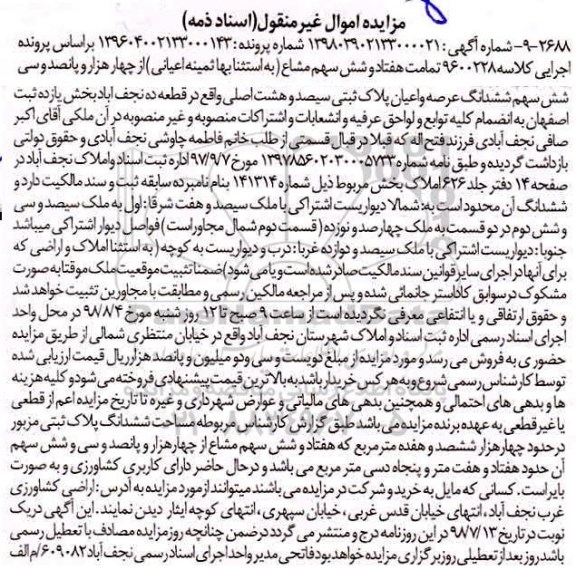 مزایده اموال غیرمنقول(اسناد ذمه)
۲۶۸۸-۹- شماره آگهی: ۱۳۹۸۰۳۹۰۲۱۳۳۰۰۰۰۲۱ شماره پرونده: ۱۳۹۶۰۴۰۰۲۱۳۳۰۰۰۱۴۳ براساس پرونده
اجرایی کلاسه ۹۶۰۰۲۲۸ تمامت هفتاد و شش سهم مشاع (به استثنا بها ثمینه اعیانی) از چهار هزار و پانصد و سی
شش سهم ششدانگ عرصه واعیان پلاک ثبتی سیصد و هشت اصلی واقع در قطعه ده نجف اباد بخش یازده ثبت
اصفهان به انضمام کلیه توابع و لواحق عرفیه و انشعابات و اشتراکات منصوبه و غیر منصوبه در آن ملکی آقای اکبر
صافی نجف آبادی فرزند فتح اله که قبلا در قبال قسمتی از طلب خانم فاطمه چاوشی نجف آبادی و حقوق دولتی
بازداشت گردیده و طبق نامه شماره ۱۳۹۷۸۵۶۰۲۰۳۰۰۰۵۷۳۳ مورخ ۹۷/۹/۷ اداره ثبت اسناد واملاک نجف آباد در
صفحه ۱۴ دفتر جلد ۶۲۶ املاک بخش مربوط ذیل شماره ۱۴۱۳۱۴ بنام نامبرده سابقه ثبت و سند مالکیت دارد و
ششدانگ آن محدود است به: شمالا دیواریست اشتراکی با ملک سیصد و هفت شرقا: اول به ملک سیصد و سی
و شش دوم در دو قسمت به ملک چهارصد و نوزده (قسمت دوم شمال مجاور است) فواصل دیوار اشتراکی میباشد
جنوبا: دیواریست اشتراکی با ملک سیصد و دوازده غربا: درب و دیواریست به کوچه (به استثنا املاک و اراضی که
برای آنها در اجرای سایر قوانین سند مالکیت صادر شده است و یا می شود) ضمنا تثبیت موقعیت ملک موقتا به صورت
مشکوک در سوابق کاداستر جانمائی شده و پس از مراجعه مالکین رسمی و مطابقت با مجاورین تثبیت خواهد شد
و حقوق ارتفاقی و یا انتفاعی معرفی نگردیده است از ساعت ۹ صبح تا ۱۲ روز شنبه مورخ ۹۸/۸/۴ در محل واحد
اجرای اسناد رسمی اداره ثبت اسناد و املاک شهرستان نجف آباد واقع در خیابان منتظری شمالی از طریق مزایده
حضوری به فروش می رسد و مورد مزایده از مبلغ دویست و سی ودو میلیون و پانصد هزار ریال قیمت ارزیابی شده
توسط کارشناس رسمی شروع و به هر کس خریدار باشد به بالاترین قیمت پیشنهادی فروخته می شود و کلیه هزینه
ها و بدهی های احتمالی و همچنین بدهی های مالیاتی و عوارض شهرداری و غیره تا تاریخ مزایده اعم از قطعی
یا غیر قطعی به عهده برنده مزایده می باشد طبق گزارش کارشناس مربوطه مساحت ششدانگ پلاک ثبتی مزبور
در حدود چهار هزار ششصد و هفده متر مربع که هفتاد و شش سهم مشاع از چهار هزار و پانصد و سی و شش سهم
آن حدود هفتاد و هفت متر و پنجاه دسی متر مربع می باشد و در حال حاضر دارای کاربری کشاورزی و به صورت
بایر است. کسانی که مایل به خرید و شرکت در مزایده می باشند میتوانند از مورد مزایده به آدرس: اراضی کشاورزی
غرب نجف آباد، انتهای خیابان قدس غربی، خیابان سپهری، انتهای کوچه ایثار دیدن نمایند. این آگهی در یک
نوبت در تاریخ ۹۸/۷/۱۳ در این روزنامه درج و منتشر می گردد در ضمن چنانچه روز مزایده مصادف با تعطیل رسمی
باشد روز بعد از تعطیلی روز برگزاری مزایده خواهد بود فاتحی مدیر واحد اجرای اسناد رسمی نجف آباد ۶۰۹۰۸۲/م الف